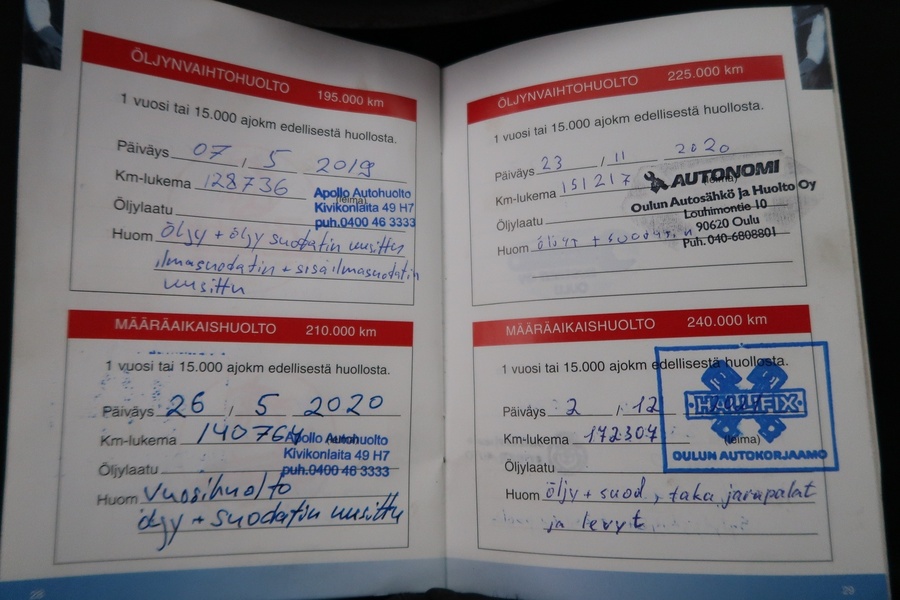 ÖLJYNVAIHTOHUOLTO 195.000 km
1 vuosi tai 15.000 ajokm edellisestä huollosta.
Päiväys 07 / 5 2019
Km-lukema 128736
Apollo Autohuolto
Kivikonlaita 49 H7
puh.0400 46 3333
(leima)
Öljylaatu
Huom öljy + öljy suodatin uusittu
ilmasuodatin + sisäilmasuodatin
uusittu
MÄÄRÄAIKAISHUOLTO 210.000 km
1 vuosi tai 15.000 ajokm edellisestä huollosta.
Päiväys 26 / 5 2020
Km-lukema 140764
Apollo Autohuolto
Kivikonlaita 49 H7
puh.0400 46 3333
Öljylaatu
Huom Vuosihuolto
öljy + suodatin uusittu
28
ÖLJYNVAIHTOHUOLTO 225.000 km
1 vuosi tai 15.000 ajokm edellisestä huollosta.
Päiväys 23 / 11 2020
Km-lukema 151217
AUTONOMI
Oulun Autosähkö ja Huolto Oy
Louhimontie 10
90620 Oulu
Puh. 040-6808801
Öljylaatu
Huom öljyt + suodatin
MÄÄRÄAIKAISHUOLTO 240.000 km
1 vuosi tai 15.000 ajokm edellisestä huollosta.
Päiväys 2 / 12
Km-lukema 172307
HALLIFIX
(leima)
OULUN AUTOKORJAAMO
Öljylaatu
Huom öljy + suod, taka jarrupalat
ja levyt
29